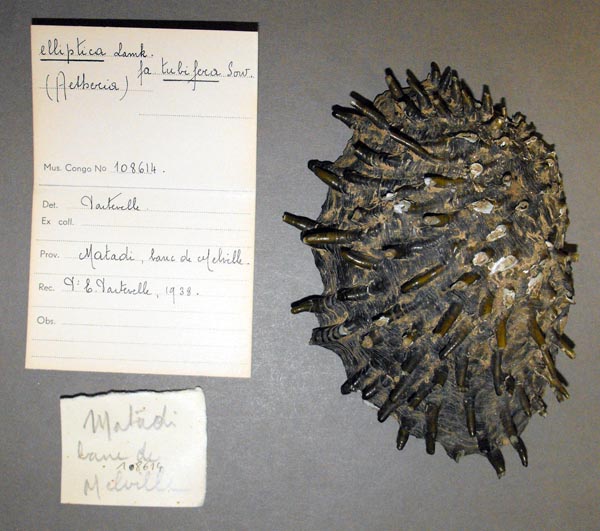 elliptica Lamk.
fa tubifera Sow.
(Aetheria)
Mus. Congo No 108614.
Det. Dartevelle
Ex coll.
Prov. Matadi, banc de Melville.
Rec. Dr E. Dartevelle, 1938.
Obs.
Matadi
banc de
108614
Melville